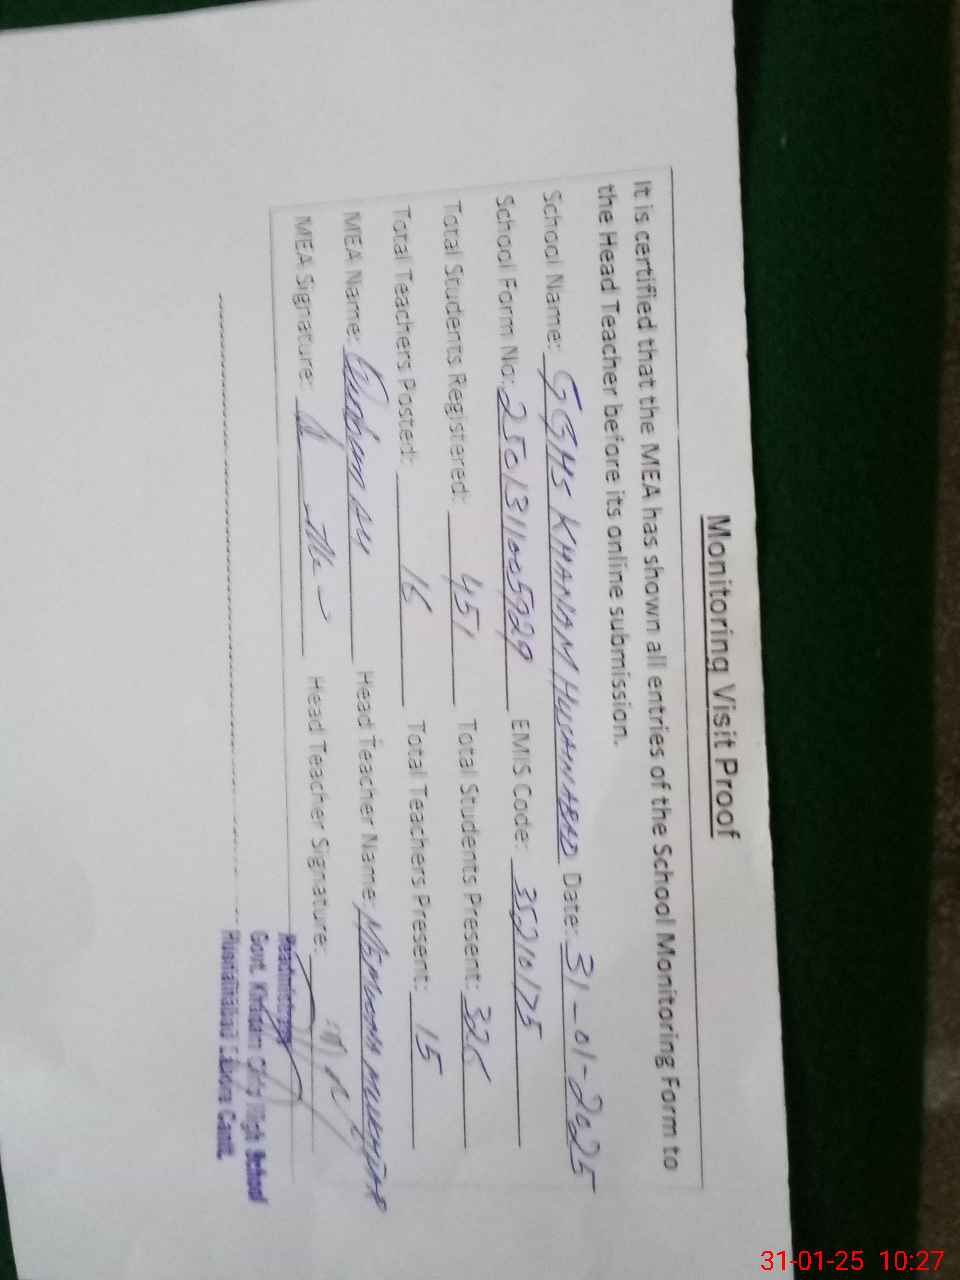 Monitoring Visit Proof
It is certified that the MEA has shown all entries of the School Monitoring Form to
the Head Teacher before its online submission.
School Name: GGHS KHANAM HUSAINABAD Date: 31-01-2025
School Form No: 2501311005929 EMIS Code: 35210175
Total Students Registered: 451 Total Students Present:
Total Teachers Posted: 16 Total Teachers Present: 15
MEA Name: Head Teacher Name: MEMOONA MUKHTAR
MEA Signature: Head Teacher Signature:
Headmistress
Govt. Khanam Girls High School
Husnainabad Lahore Cantt.
31-01-25 10:27